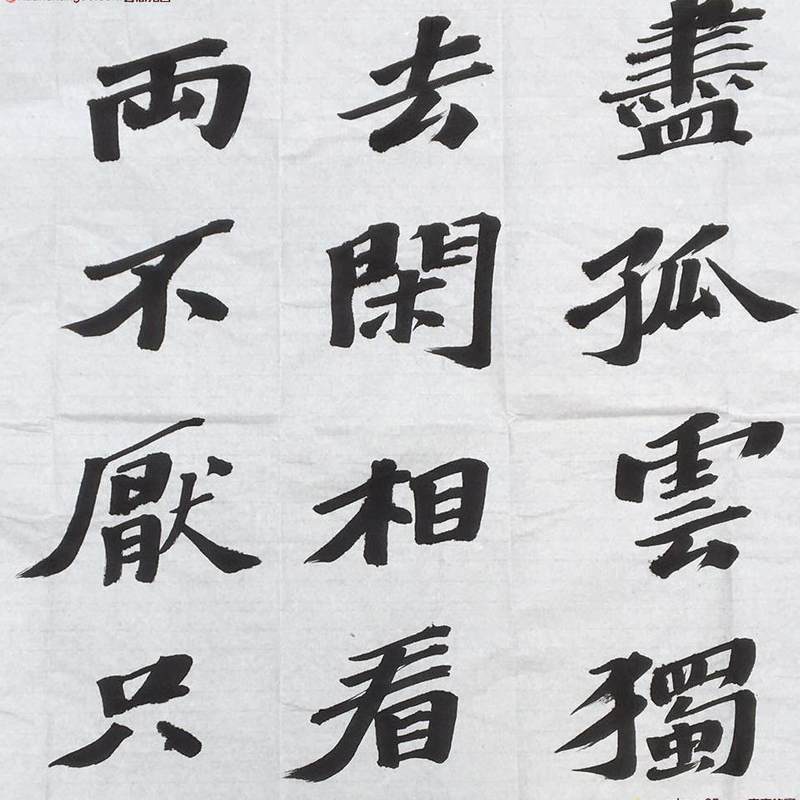 盡孤雲獨
去閑相看
両不厭只